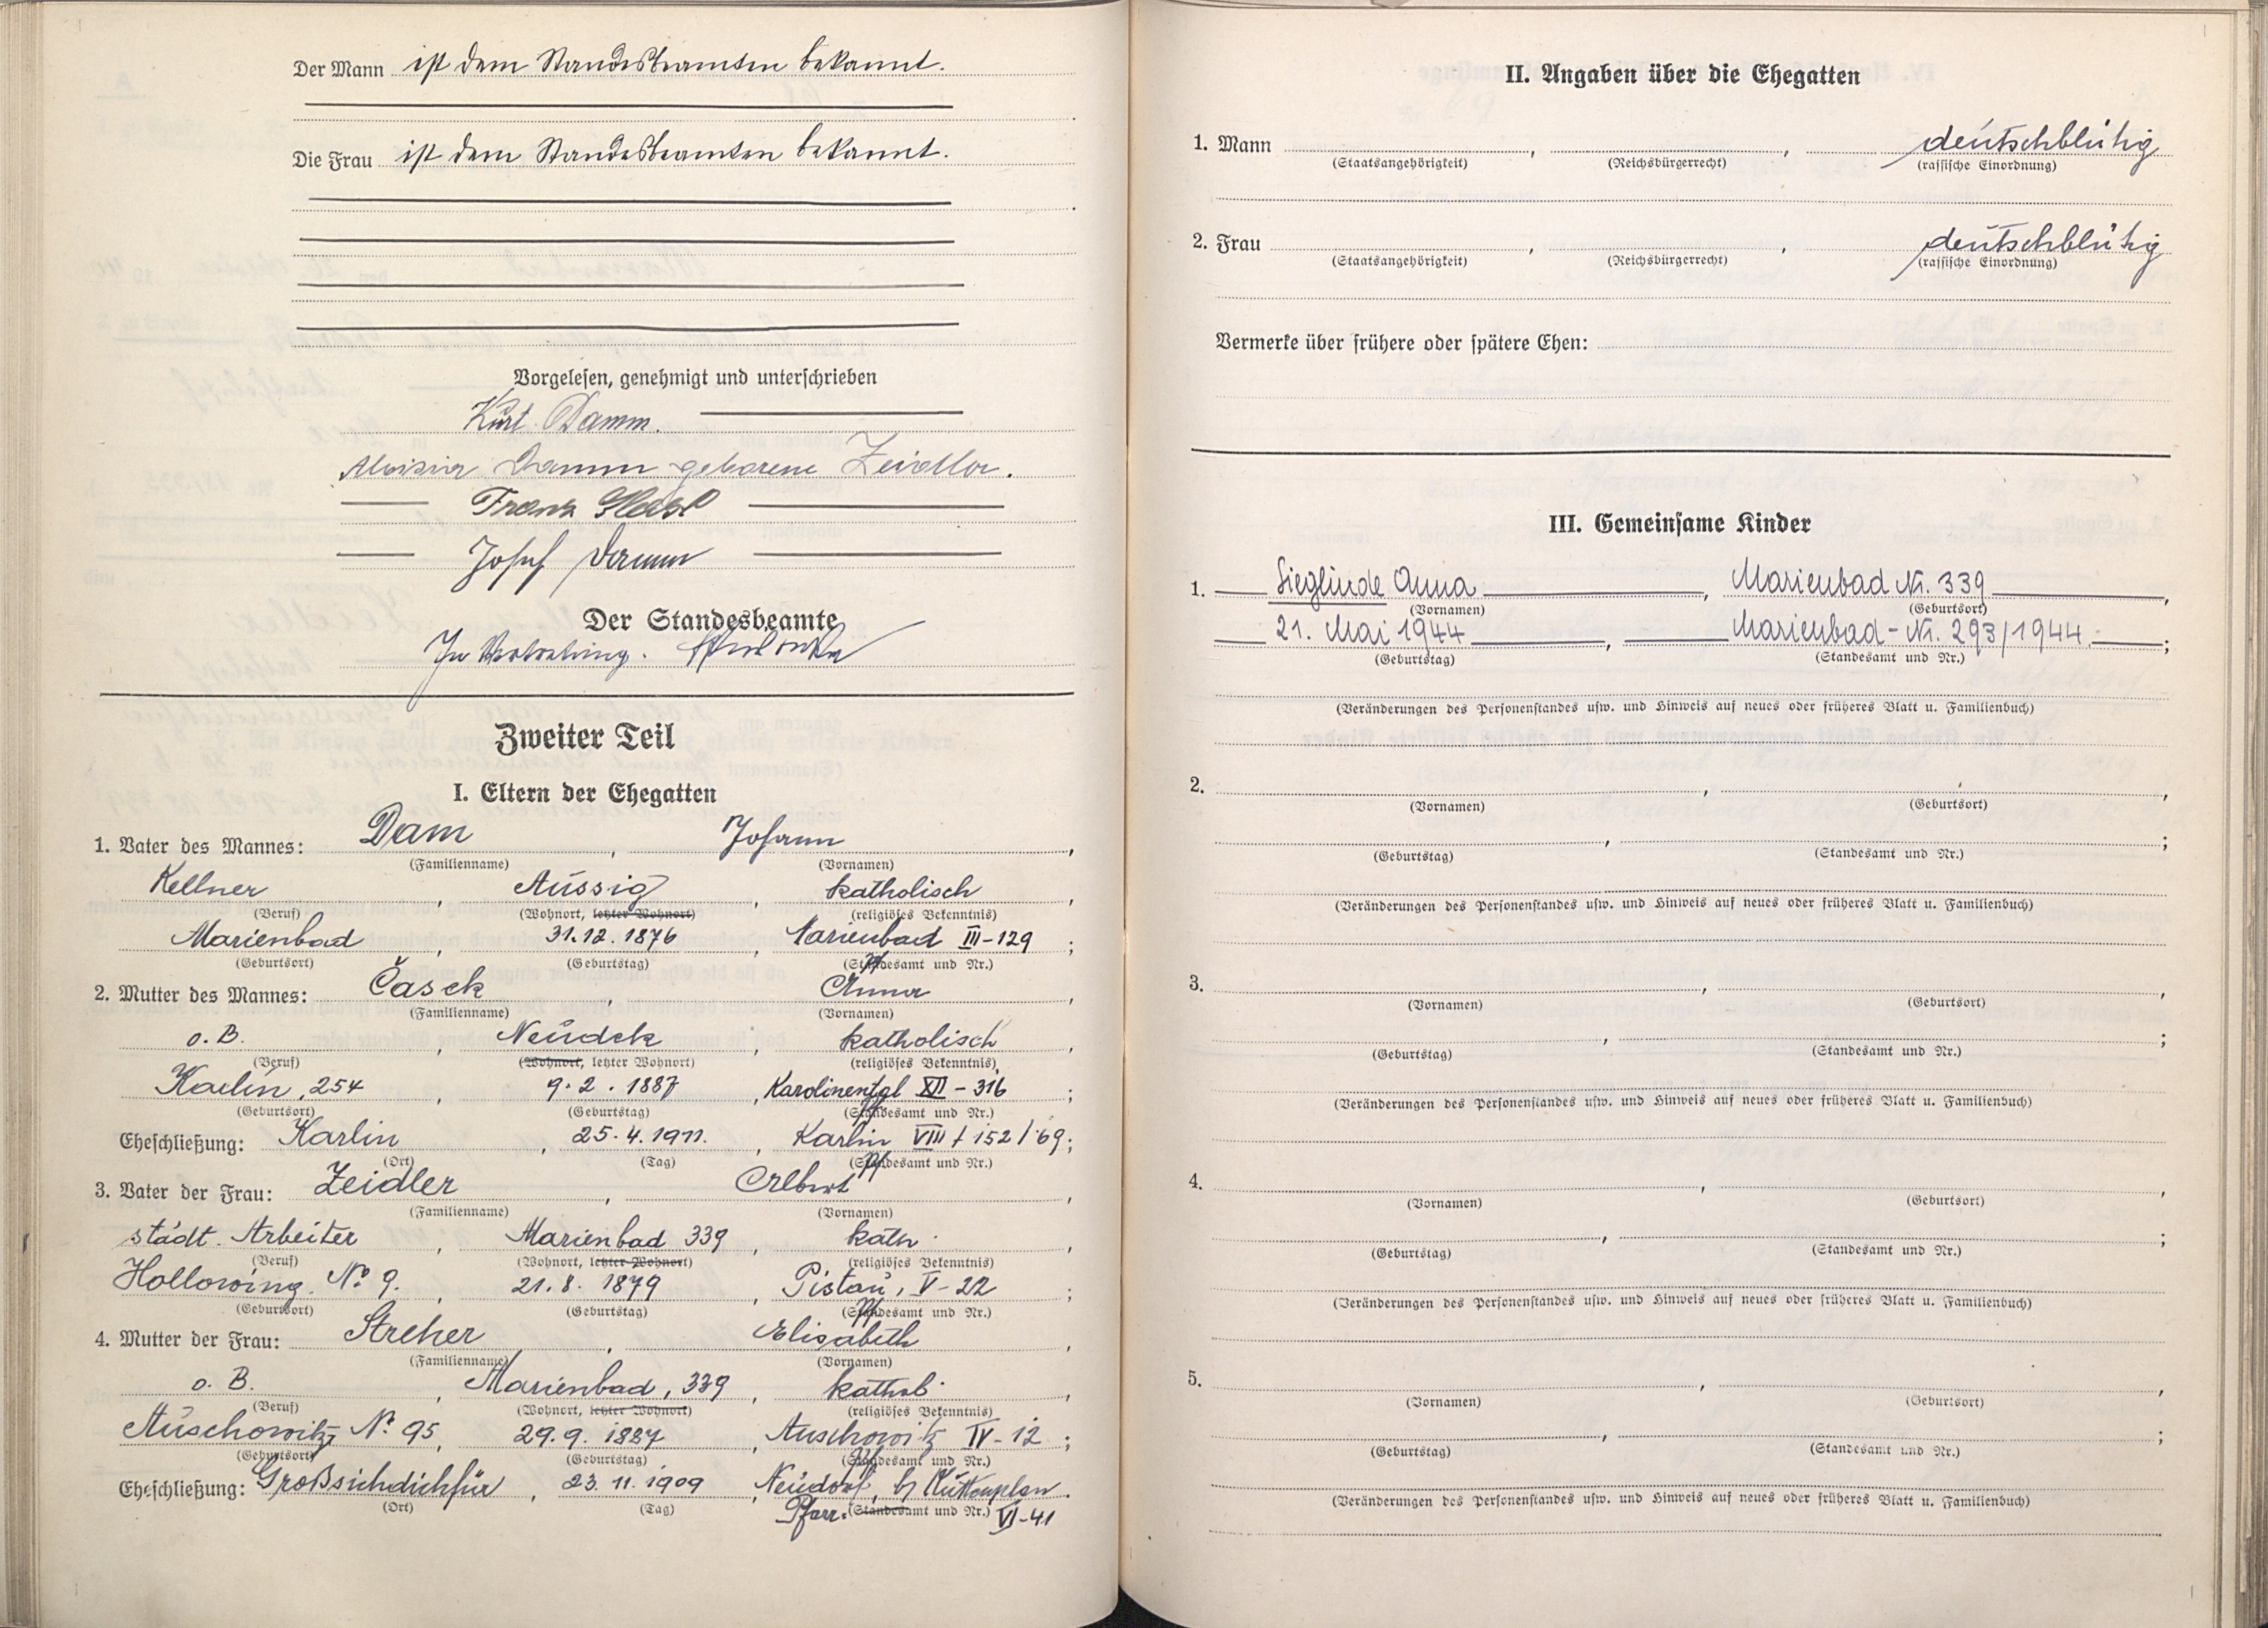 Der Mann ist dem Standesbeamten bekannt.
Die Frau ist dem Standesbeamten bekannt.
Vorgelesen, genehmigt und unterschrieben
Kurt Damm.
Aloisia Damm geborene Zeidler.
Franz
Josef Damm
Der Standesbeamte
In Vertretung.
Zweiter Teil
I. Eltern der Ehegatten
1. Vater des Mannes: Dam, Johann,
(Familienname) (Vornamen)
Kellner, Aussig, katholisch,
(Beruf) (Wohnort, letzter Wohnort) (religiöses Bekenntnis)
Marienbad, 31.12.1876, Marienbad III-129;
(Geburtsort) (Geburtstag) (Standesamt und Nr.)
2. Mutter des Mannes: Časek, Anna,
(Familienname) (Vornamen)
o.B., Neudek, katholisch,
(Beruf) (Wohnort, letzter Wohnort) (religiöses Bekenntnis)
Karlin, 254, 9.2.1887, Karolinental XII-316;
(Geburtsort) (Geburtstag) (Standesamt und Nr.)
Eheschließung: Karlin, 25.4.1911., Karlin VIII / 152 / 69;
(Ort) (Tag) (Standesamt und Nr.)
3. Vater der Frau: Zeidler, Albert,
(Familienname) (Vornamen)
städt. Arbeiter, Marienbad 339, kath.,
(Beruf) (Wohnort, letzter Wohnort) (religiöses Bekenntnis)
Hollowing. No 9., 21.8.1879, Pistau, V-22;
(Geburtsort) (Geburtstag) (Standesamt und Nr.)
4. Mutter der Frau: Streher, Elisabeth,
(Familienname) (Vornamen)
o. B., Marienbad, 339, kathol.,
(Beruf) (Wohnort, letzter Wohnort) (religiöses Bekenntnis)
Auschowitz No 95, 29.9.1887, Auschowitz IV-12;
(Geburtsort) (Geburtstag) (Standesamt und Nr.)
Eheschließung: Großsichdichfür, 23.11.1909, Neudorf, b/ Kuttenplan.
(Ort) (Tag) Pfarr- (Standesamt und Nr.) VI-41
II. Angaben über die Ehegatten
1. Mann , , deutschblütig
(Staatsangehörigkeit) (Reichsbürgerrecht) (rassische Einordnung)
2. Frau , , deutschblütig
(Staatsangehörigkeit) (Reichsbürgerrecht) (rassische Einordnung)
Vermerke über frühere oder spätere Ehen:
III. Gemeinsame Kinder
1. Sieglinde Anna, Marienbad Nr. 339,
(Vornamen) (Geburtsort)
21. Mai 1944, Marienbad - Nr. 293/1944.;
(Geburtstag) (Standesamt und Nr.)
(Veränderungen des Personenstandes usw. und Hinweis auf neues oder früheres Blatt u. Familienbuch)
2. , ,
(Vornamen) (Geburtsort)
, ;
(Geburtstag) (Standesamt und Nr.)
(Veränderungen des Personenstandes usw. und Hinweis auf neues oder früheres Blatt u. Familienbuch)
3. , ,
(Vornamen) (Geburtsort)
, ;
(Geburtstag) (Standesamt und Nr.)
(Veränderungen des Personenstandes usw. und Hinweis auf neues oder früheres Blatt u. Familienbuch)
4. , ,
(Vornamen) (Geburtsort)
, ;
(Geburtstag) (Standesamt und Nr.)
(Veränderungen des Personenstandes usw. und Hinweis auf neues oder früheres Blatt u. Familienbuch)
5. , ,
(Vornamen) (Geburtsort)
, ;
(Geburtstag) (Standesamt und Nr.)
(Veränderungen des Personenstandes usw. und Hinweis auf neues oder früheres Blatt u. Familienbuch)